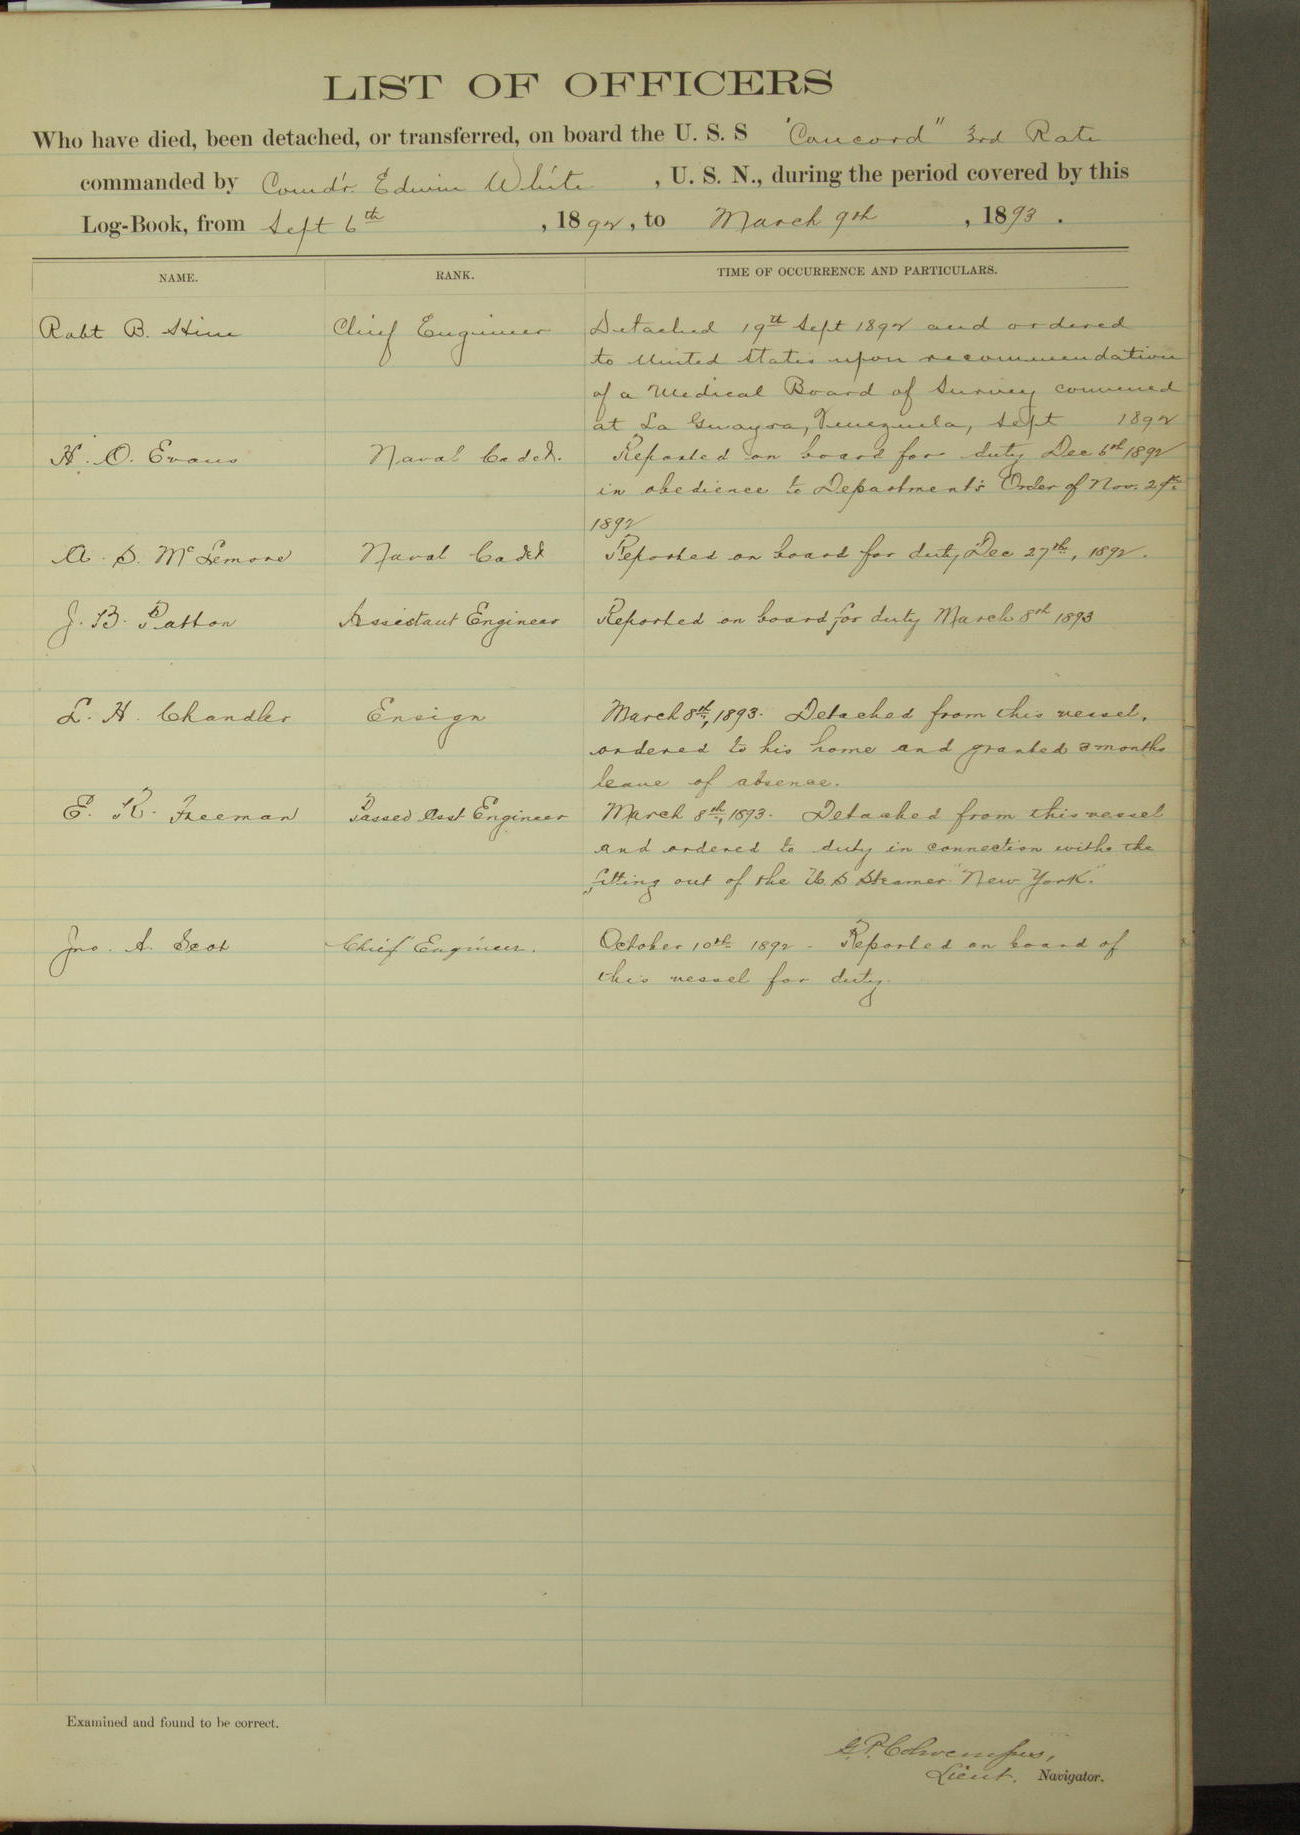 LIST OF OFFICERS
Who have died, been detached, or transferred, on board the U. S. S "Concord" 3rd Rate
commanded by Comd'r. Edwin White , U. S. N., during the period covered by this
Log-Book, from Sept 6th , 1892, to March 9th , 1893 .
NAME. RANK. TIME OF OCCURRENCE AND PARTICULARS.
Robt B. Hine Chief Engineer Detached 19th Sept 1892 and ordered
to United States upon recommendation
of a Medical Board of Survey convened
at La Guayra, Venezuela, Sept 1892
H. O. Evans Naval Cadet. Reported on board for duty Dec 6th 1892
in obedience to Department's Order of Nov. 29th
1892
A. S. McLemore Naval Cadet Reported on board for duty Dec 27th, 1892.
J. B. Patton Assistant Engineer Reported on board for duty March 8th 1893
L. H. Chandler Ensign March 8th, 1893. Detached from this vessel,
ordered to his home and granted 3 months
leave of absence.
E. R. Freeman Passed Asst Engineer March 8th, 1893. Detached from this vessel
and ordered to duty in connection with the
fitting out of the U S Steamer "New York."
Jno. A. Scot Chief Engineer. October 10th 1892 - Reported on board of
this vessel for duty.
Examined and found to be correct.
G. P. Colvocoresses,
Lieut. Navigator.